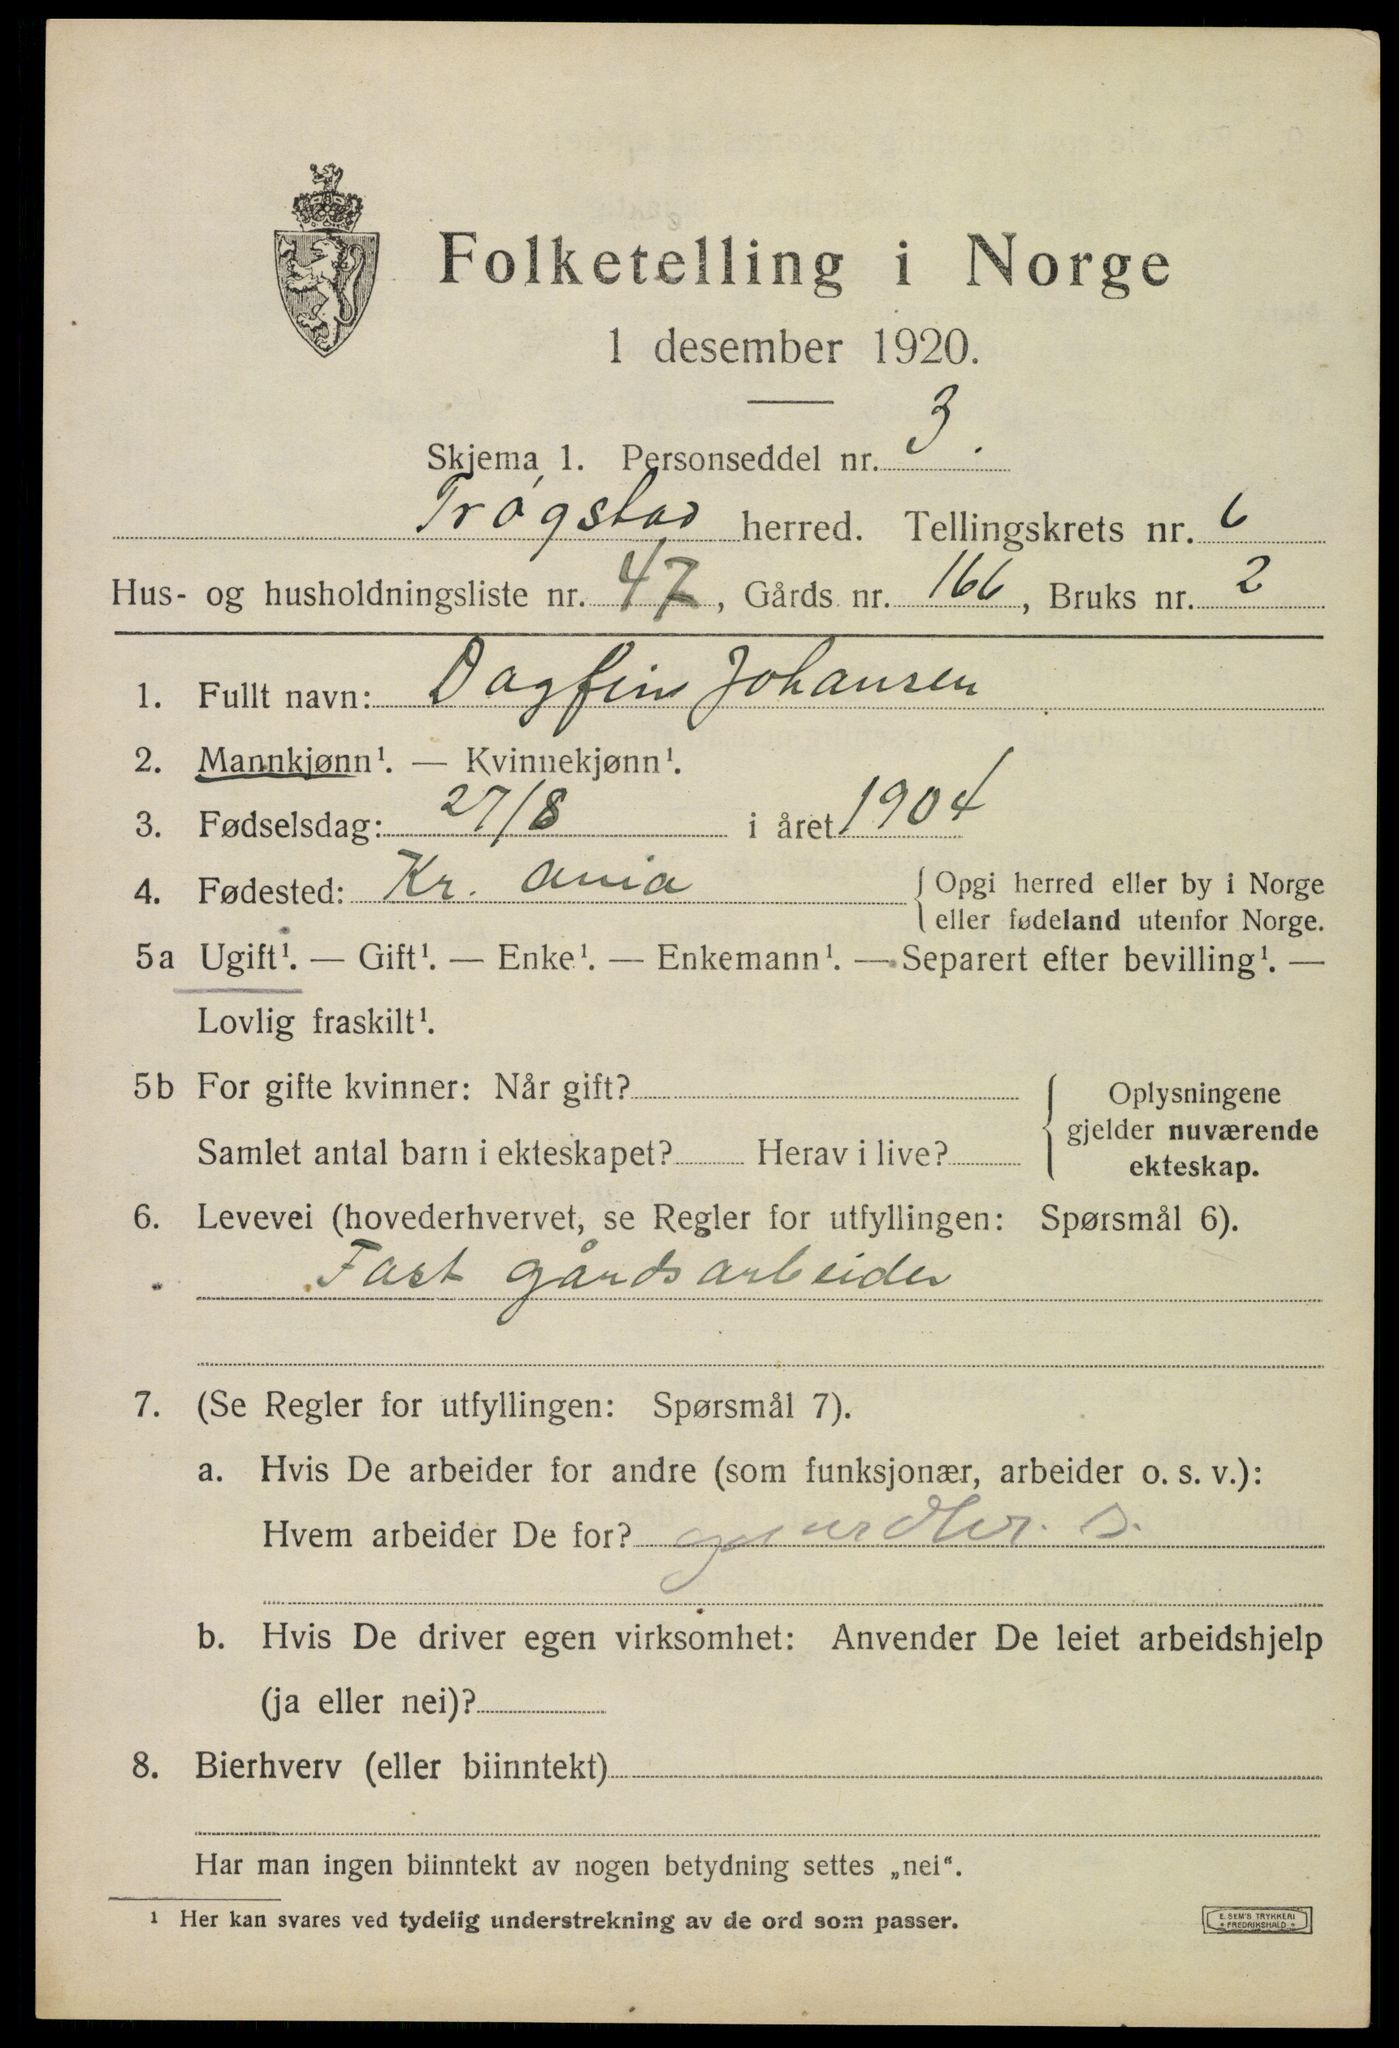 Folketelling i Norge
1 desember 1920.
Skjema 1. Personseddel nr. 3.
Trøgstad herred. Tellingskrets nr. 6
Hus- og husholdningsliste nr. 47, Gårds nr. 166, Bruks nr. 2
1. Fullt navn: Dagfin Johansen
2. Mannkjønn¹. — Kvinnekjønn¹.
3. Fødselsdag: 27/8 i året 1904
4. Fødested: Kr.ania { Opgi herred eller by i Norge
eller fødeland utenfor Norge.
5a Ugift¹. — Gift¹. — Enke¹. — Enkemann¹. — Separert efter bevilling¹. —
Lovlig fraskilt¹.
5b For gifte kvinner: Når gift?
Samlet antal barn i ekteskapet? Herav i live?
Oplysningene
gjelder nuværende
ekteskap.
6. Levevei (hovederhvervet, se Regler for utfyllingen: Spørsmål 6).
Fast gårdsarbeider
7. (Se Regler for utfyllingen: Spørsmål 7).
a. Hvis De arbeider for andre (som funksjonær, arbeider o. s. v.):
Hvem arbeider De for?
b. Hvis De driver egen virksomhet: Anvender De leiet arbeidshjelp
(ja eller nei)?
8. Bierhverv (eller biinntekt)
Har man ingen biinntekt av nogen betydning settes „nei“.
¹ Her kan svares ved tydelig understrekning av de ord som passer.
E. SEM'S TRYKKERI
FREDRIKSHALD